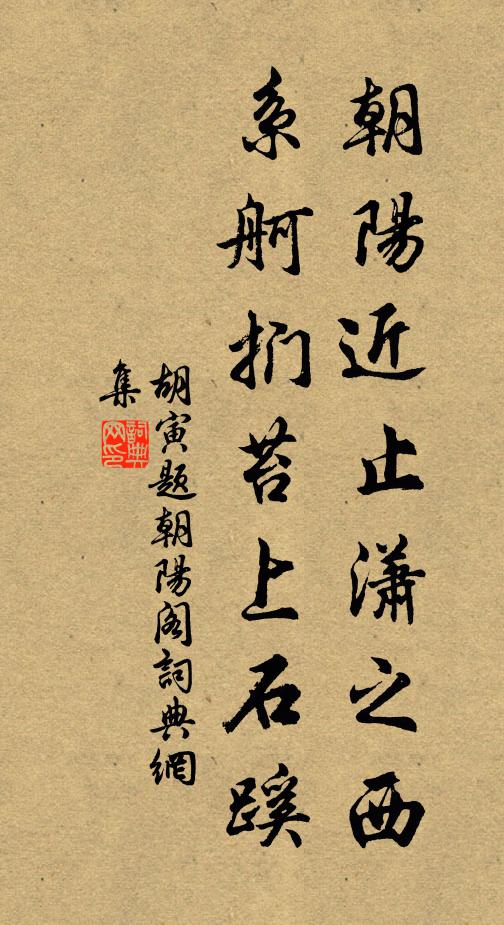 朝陽近止瀟之西
系舸捫苔上石蹊
胡寅題朝陽阁詞典網
集
詞典网印